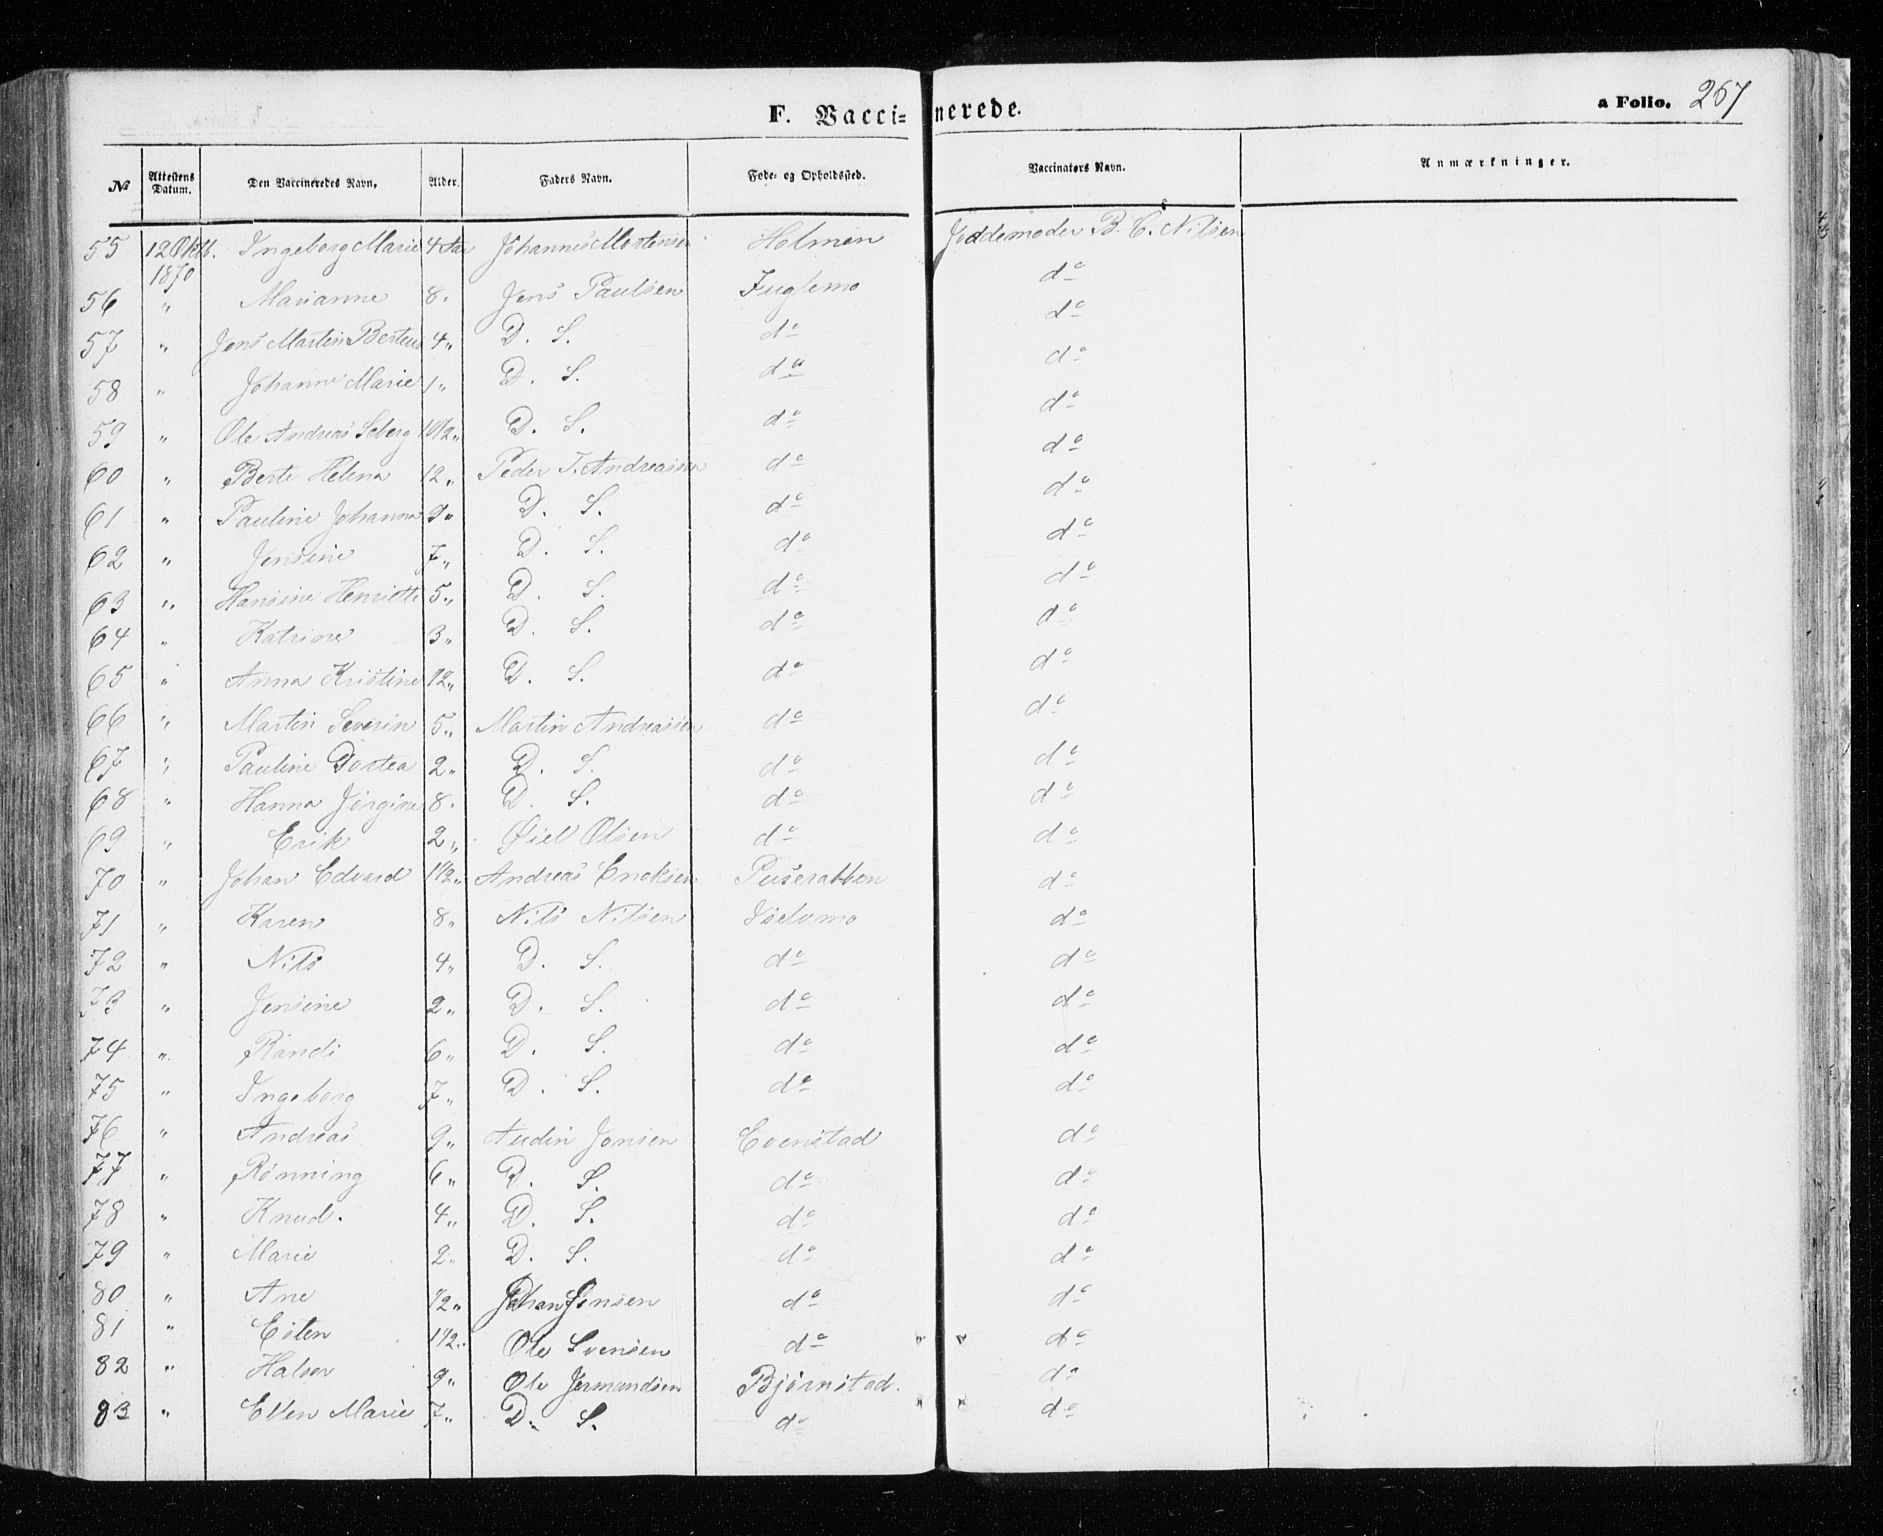 F. Vaccinerede.
a Folio. 267
No Attestens Datum. Den Vaccineredes Navn. Alder. Faders Navn. Føde- og Opholdssted. Vaccinators Navn. Anmærkninger.
55 12 Oktb. Ingeborg Marie 4 Aar Johannes Mortensen Holmen Joddemoder B. C. Nilsen
1870
56 " Marianne 8 " Jens Paulsen Fuglemo do
57 " Jens Martin Berteus 4 " D. S. do do
58 " Johanne Marie 1 " D. S. do do
59 " Ole Andreas Seberg 10 1/2 " D. S. do do
60 " Berte Helena 12 " Peder J. Andreassen do do
61 " Pauline Johanna 9 " D. S. do do
62 " Jensine 7 " D. S. do do
63 " Hansine Henriette 5 " D. S. do do
64 " Katrine 3 " D. S. do do
65 " Anna Kristine 1/2 " D. S. do do
66 " Martin Severin 5 " Martin Andreassen do do
67 " Pauline Dortea 2 " D. S. do do
68 " Hanna Jørgine 8 " D. S. do do
69 " Erik 2 " Øiel Olsen do do
70 " Johan Edvard 1 1/2 " Andreas Enoksen do
71 " Karen 8 " Nils Nilsen do
72 " Nils 4 " D. S. do do
73 " Jensine 2 " D. S. do do
74 " Randi 6 " D. S. do do
75 " Ingeborg 7 " D. S. do do
76 " Andreas 9 " Audin Jonsen Evenstad do
77 " Rønning 6 " D. S. do do
78 " Knud. 4 " D. S. do do
79 " Marie 2 " D. S. do do
80 " Ane 1/2 " Johan Jonsen do do
81 " Esten 1 1/2 " Ole Svensen do do
82 " Halvor 9 " Ole Jermundsen Bjørnstad. do
83 " Ellen Marie 7 " D. S. do do